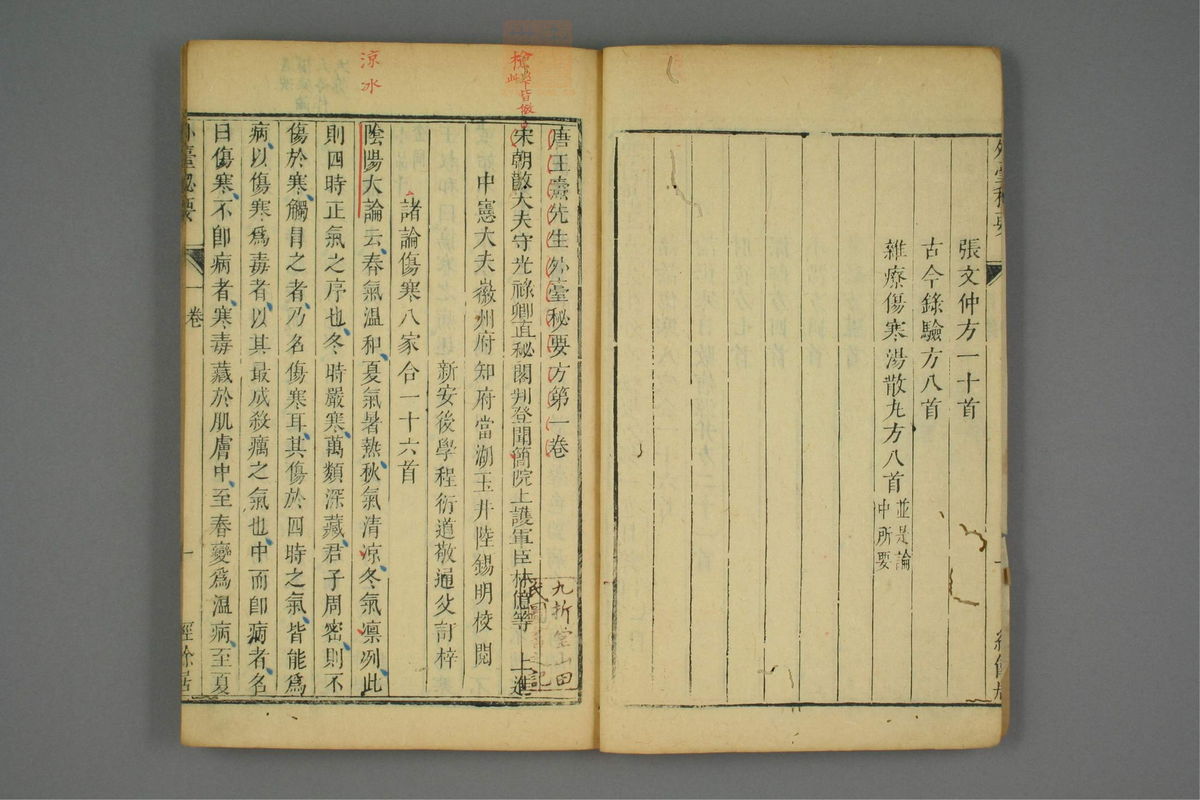 張文仲方一十首
古今錄驗方八首
雜療傷寒湯散丸方八首並是論中所要
唐王燾先生外臺秘要方第一卷
宋朝散大夫守光祿卿直秘閣判登聞簡院上護軍臣林億等 上進
中憲大夫徽州府知府當湖玉井陸錫明校閱
新安後學程衍道敬通父訂梓
諸論傷寒八家合一十六首
陰陽大論云春氣溫和夏氣暑熱秋氣清涼冬氣凜冽此
則四時正氣之序也冬時嚴寒萬類深藏君子周密則不
傷於寒觸冒之者乃名傷寒耳其傷於四時之氣皆能爲
病以傷寒爲毒者以其最成殺癘之氣也中而卽病者名
曰傷寒不卽病者寒毒藏於肌膚中至春變爲溫病至夏
外臺秘要
一卷
一
經餘居
涼冰
九折堂山田